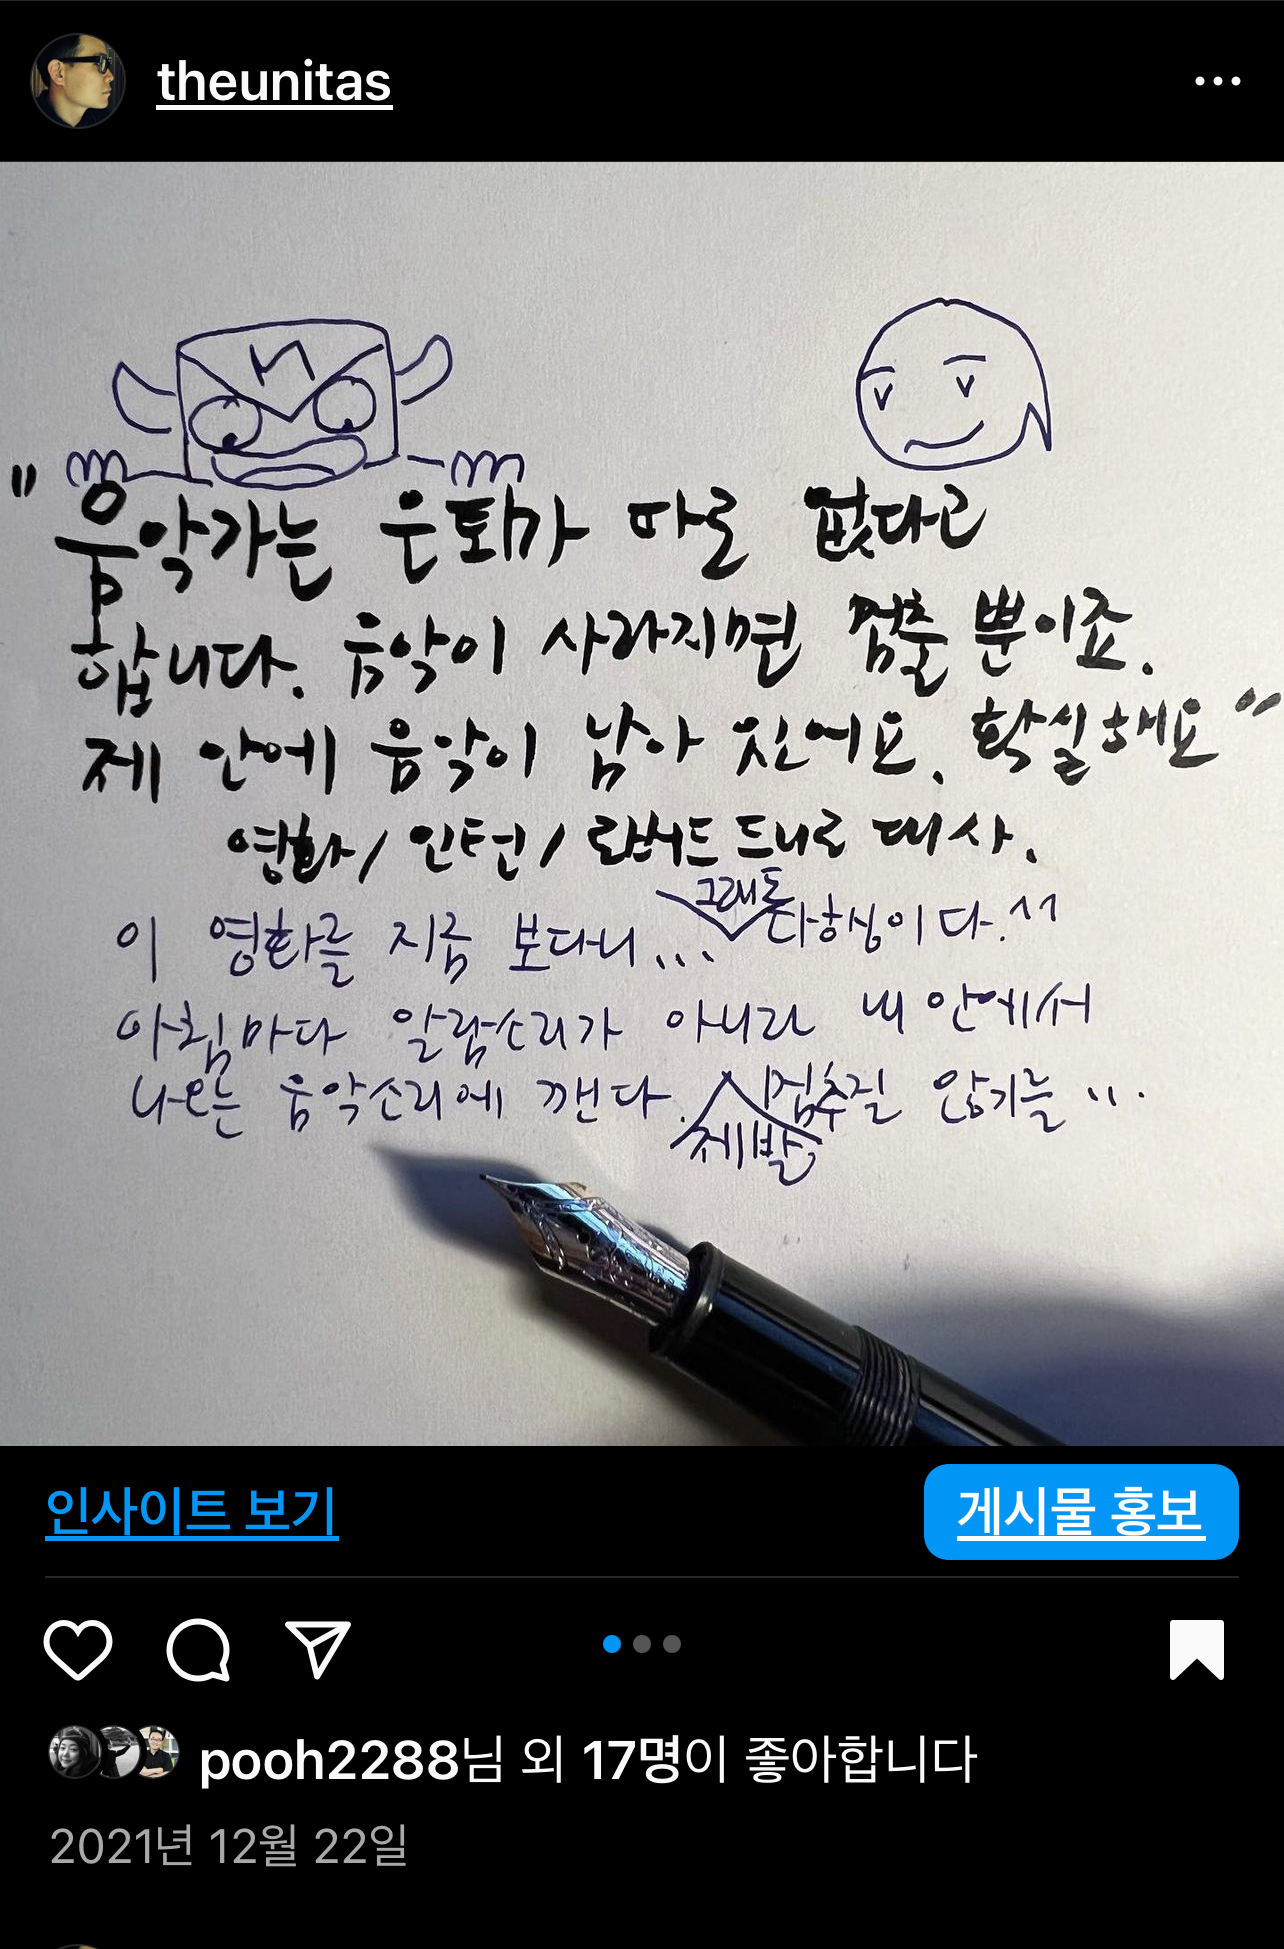 theunitas
"음악가는 은퇴가 따로 없다고
합니다. 음악이 사라지면 멈출 뿐이죠.
제 안에 음악이 남아 있어요. 확실해요"
영화/인턴/로버트 드니로 대사.
이 영화를 지금 보다니... 그래도 다행이다.^^
아침마다 알람소리가 아니라 내 안에서
나오는 음악소리에 깬다. 제발 멈추질 않기를...
인사이트 보기
게시물 홍보
pooh2288님 외 17명이 좋아합니다
2021년 12월 22일